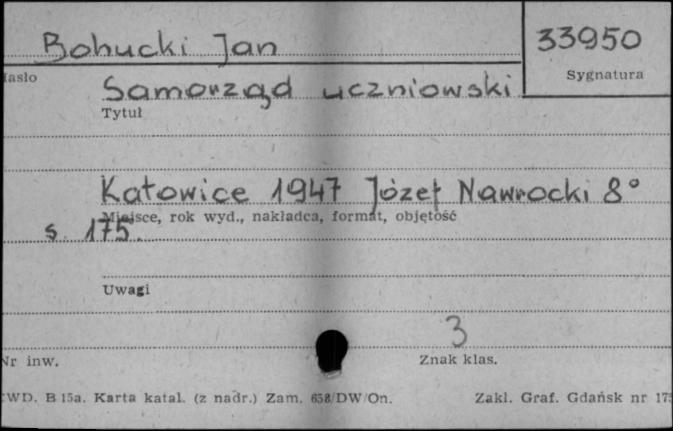 Bohucki Jan
33950
Hasło
Sygnatura
Samorząd uczniowski
Tytuł
Katowice 1947 Józef Nawrocki 8°
Miejsce, rok wyd., nakładca, format, objętość
s. 175.
Uwagi
3
Nr inw.
Znak klas.
CWD. B 15a. Karta katal. (z nadr.) Zam. 658/DW/On.
Zakl. Graf. Gdańsk nr